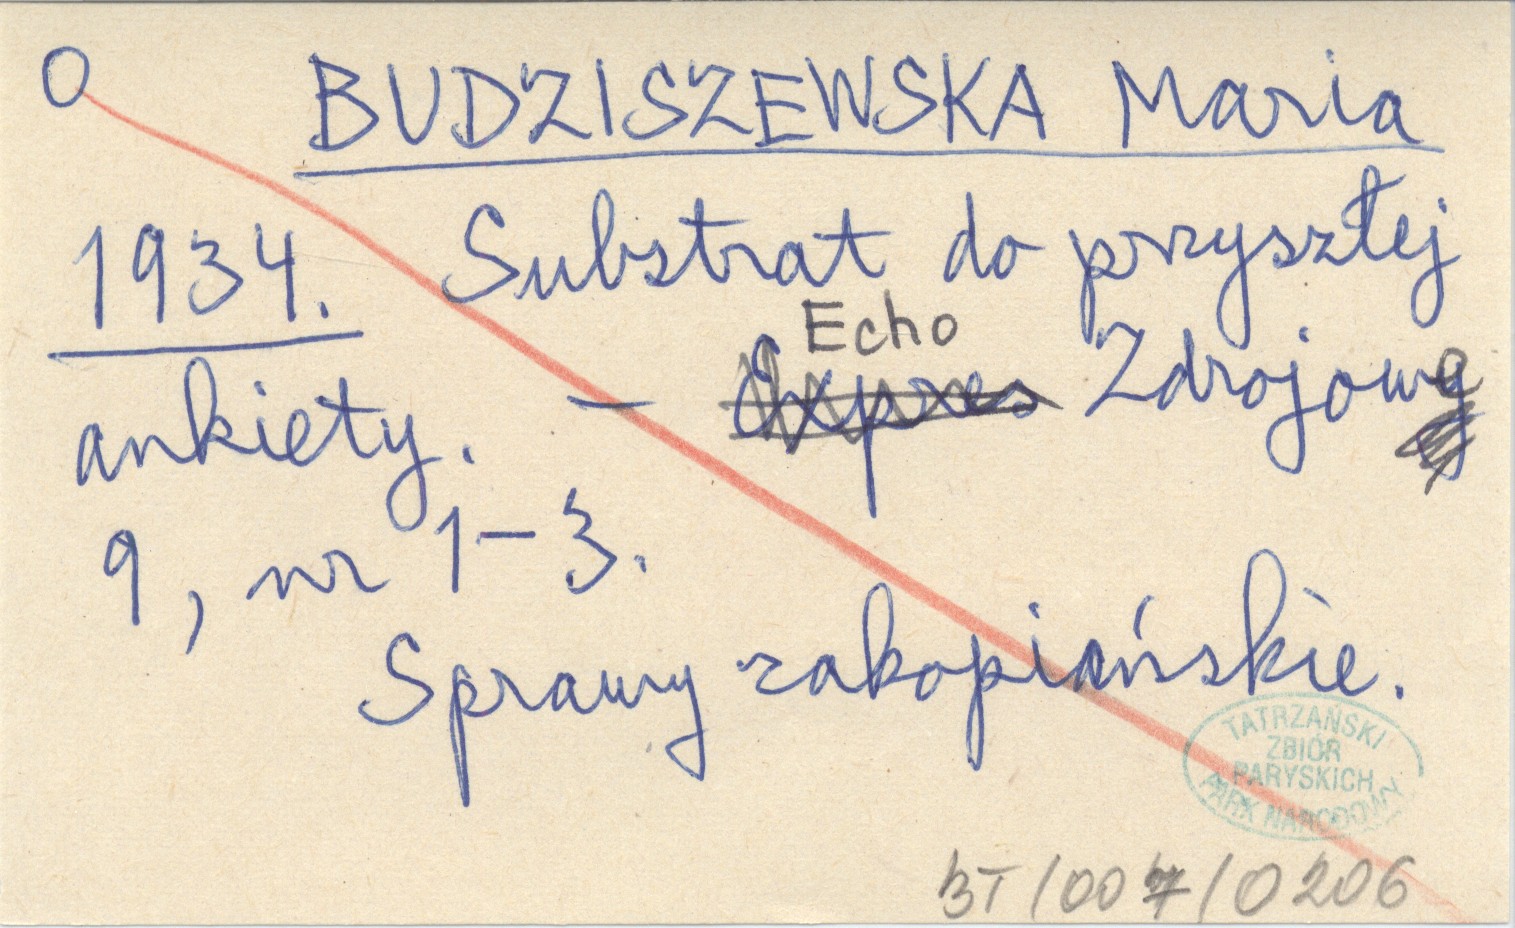 O BUDZISZEWSKA Maria
1934. Substrat do przyszłej
ankiety. – Echo Zdrojowe
9, nr 1–3.
Sprawy zakopiańskie.
TATRZAŃSKI
ZBIÓR
PARYSKICH
PARK NARODOWY
BT/007/0206